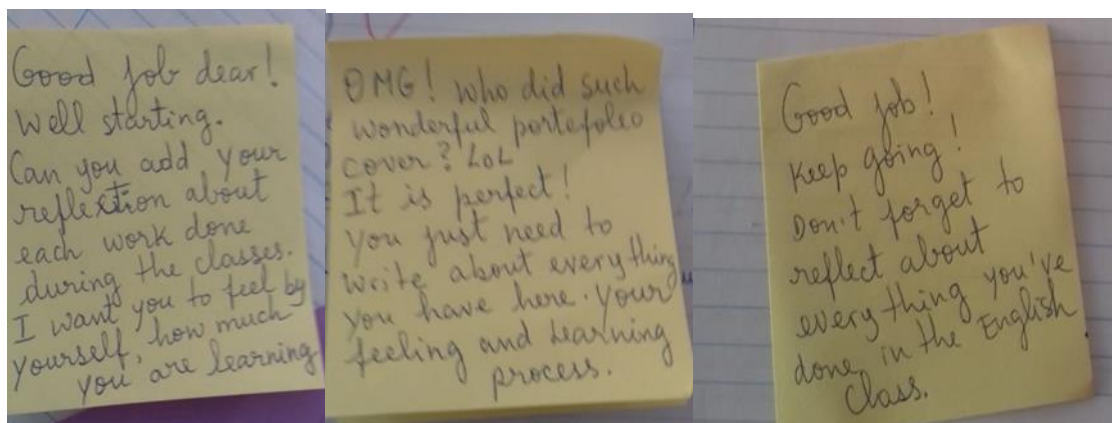 Good job dear!
Well starting.
Can you add your
reflextion about
each work done
during the classes.
I want you to feel by
yourself, how much
you are learning
OMG! who did such
wonderful portefoleo
cover? LoL
It is perfect!
You just need to
write about everything
you have here. Your
feeling and learning
process.
Good job!
Keep going!
Don't forget to
reflect about
every thing you've
done, in the English
Class.